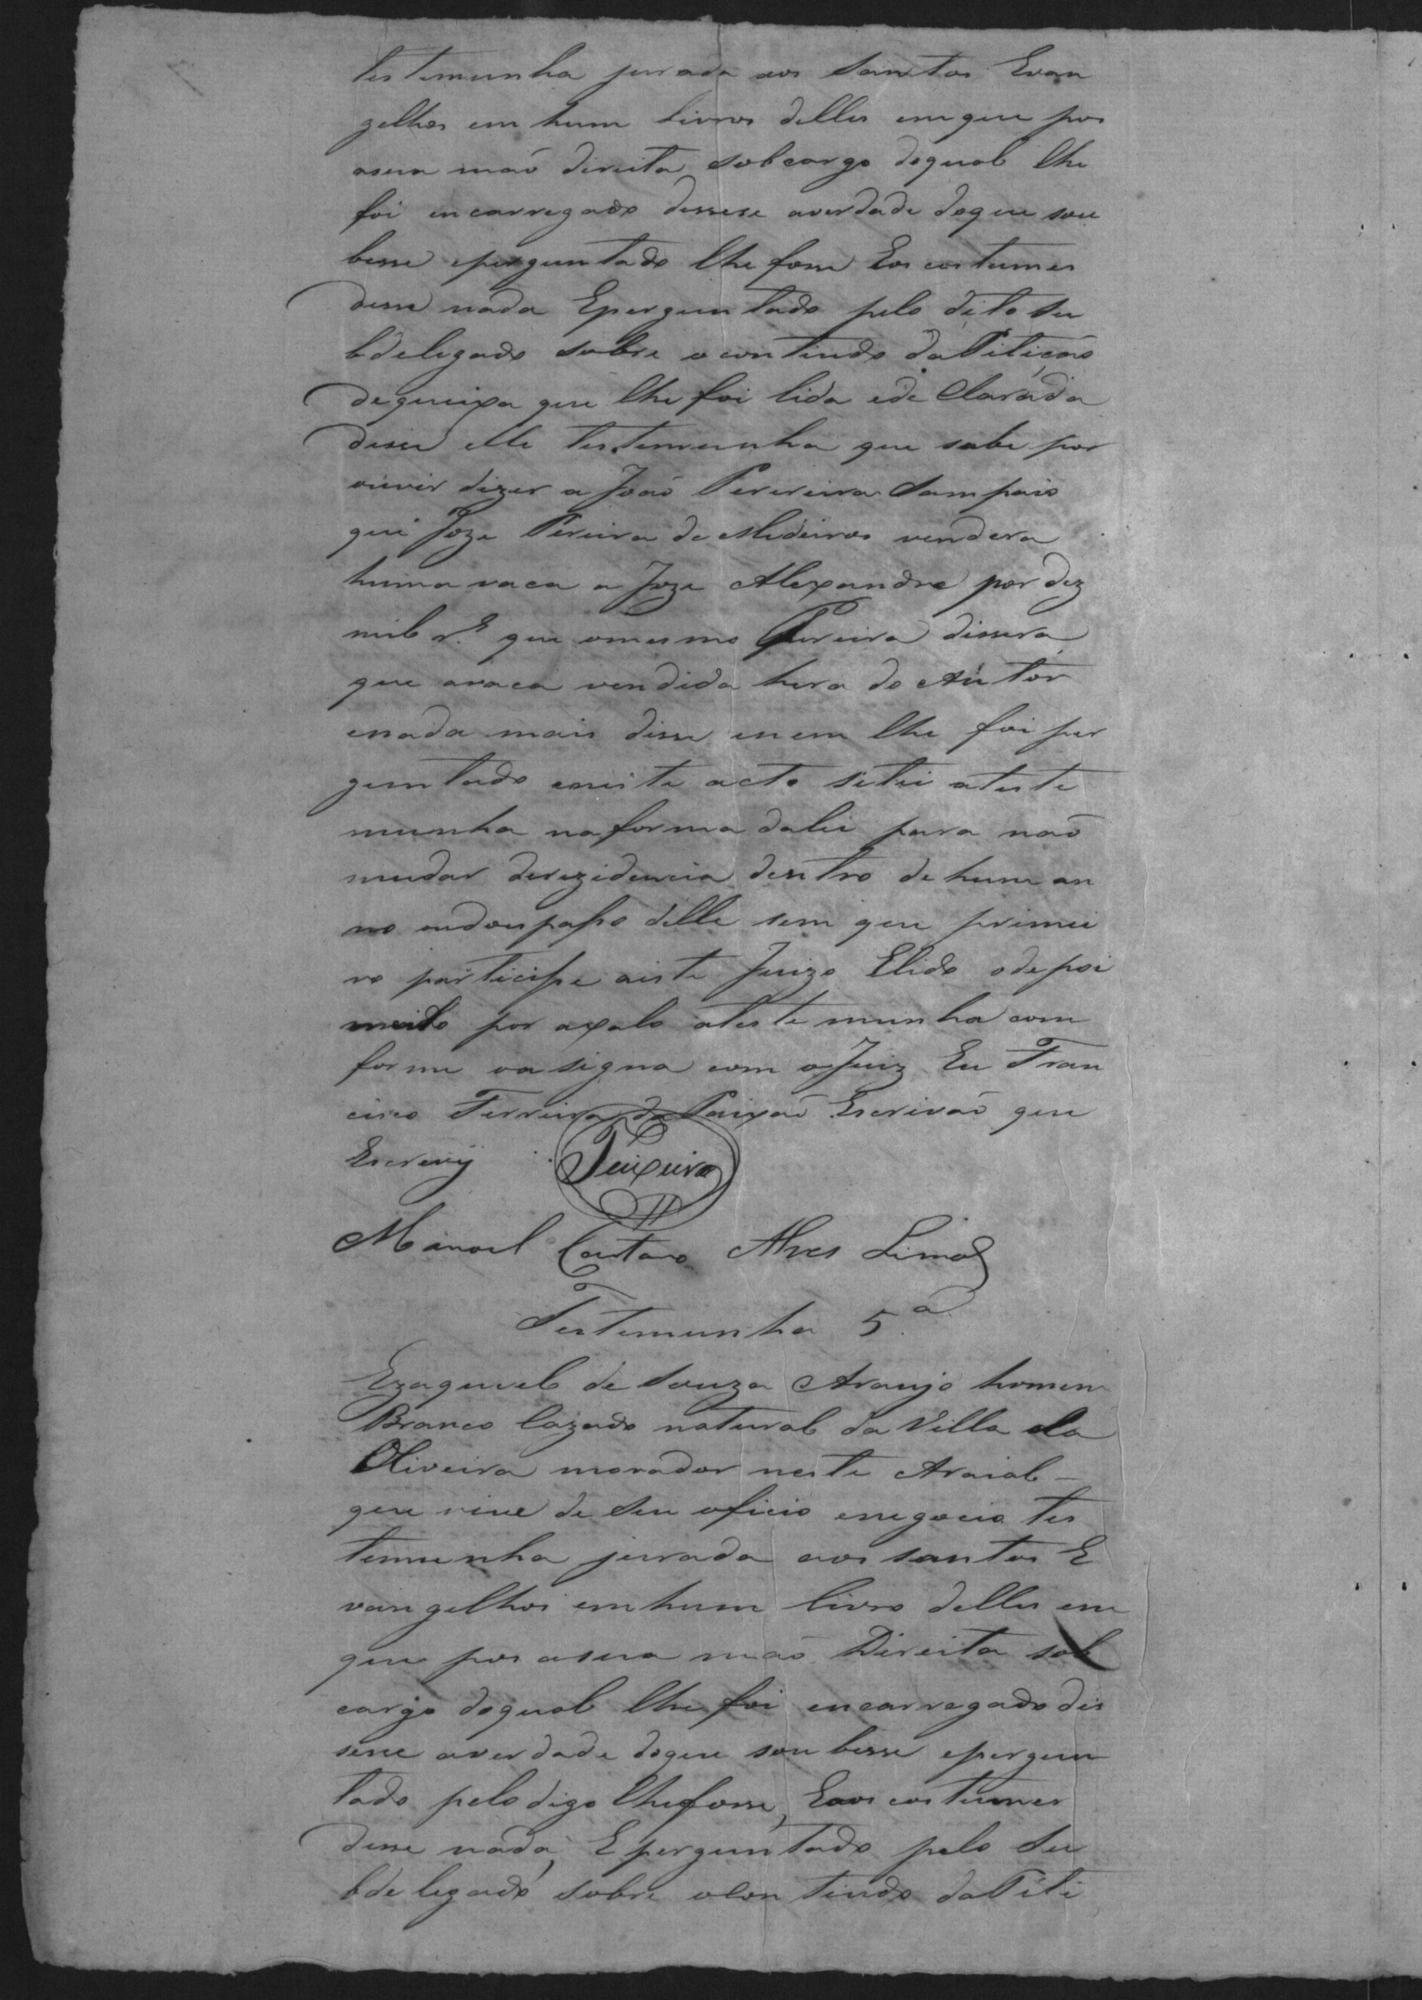 testemunha jurada aos Santos Evan
gelhos em hum Livros delles em que pos
asua maõ direita, sobcargo doqual lhe
foi encarregado dissese averdade doque sou
besse eperguntado lhe fosse Eos costumes
disse nada Eperguntado pelo dito Su
bdelegado sobre ocontiudo daPitiçaõ
dequeixa que lhe foi lida ede Clarada
disse elle testemunha que sabe por
ouvir dizer a Joaõ Perereira Sampaio
que Joze Pereira de Medeiros vendera
huma vaca a Joze Alexandre por dez
mil r.s que omesmo Pereira dissera
que avaca vendida hera do Autor
enada mais disse enem lhe foi per
guntado eneste acto sitei ateste
munha naforma dalei para naõ
mudar derezidencia dentro de hum an
no endous passo delle sem que primei
ro participe aiste Juizo Elido odepoi
mento por axalo atestemunha com
forme oasigna com oJuiz Eu Fran
cisco Ferreira da Paixaõ Escrivaõ que
Escrevij Teixeira
Manoel Caetano Alves Lima
Testemunha 5.a
Ezaquiel de Souza Araujo homem
Branco Cazado natural da Villa da
Oliveira morador neste Araial
que vive de Seu oficio enegocio tes
temunha jurada aos santos E
vangelhos emhum livro delles em
que pos asua maõ Direita sob
cargo doqual lhe foi encarregado dis
sese averdade doque soubesse epergun
tado pelo digo lhefosse, Eaos costumes
disse nada, E perguntado pelo Su
bdelegado sobre oContiudo daPiti